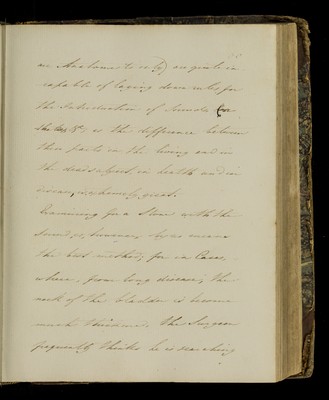 capable of laying down rules for
the Introduction of Sounds
as the difference between
these parts in the living and in
the dead subject, in health and in
disease, is extremely great.
Examining for a Stone with the
Sound is, however, by no means
the best method; for in Cases,
where, from long disease, the
neck of the bladder is become
much thickened, the Surgeon
frequently thinks he is searching